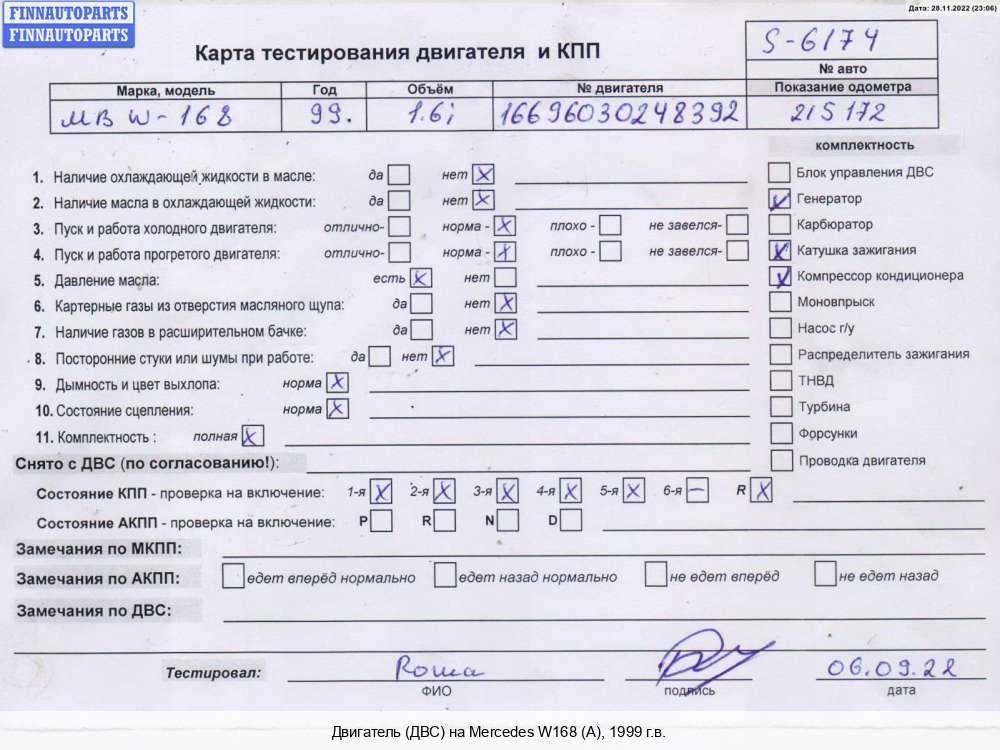 FINNAUTOPARTS
FINNAUTOPARTS
Дата: 28.11.2022 (23:06)
Карта тестирования двигателя и КПП
S-6174
№ авто
Марка, модель Год Объём № двигателя Показание одометра
МВ W-168 99. 1.6i 16696030248392 215 172
комплектность
1. Наличие охлаждающей жидкости в масле: да нет X Блок управления ДВС
2. Наличие масла в охлаждающей жидкости: да нет X Генератор
3. Пуск и работа холодного двигателя: отлично- норма - X плохо - не завелся- Карбюратор
4. Пуск и работа прогретого двигателя: отлично- норма - X плохо - не завелся- Катушка зажигания
5. Давление масла: есть X нет Компрессор кондиционера
6. Картерные газы из отверстия масляного щупа: да нет X Моновпрыск
7. Наличие газов в расширительном бачке: да нет X Насос г/у
8. Посторонние стуки или шумы при работе: да нет X Распределитель зажигания
9. Дымность и цвет выхлопа: норма X ТНВД
10. Состояние сцепления: норма X Турбина
11. Комплектность : полная X Форсунки
Снято с ДВС (по согласованию!): Проводка двигателя
Состояние КПП - проверка на включение: 1-я X 2-я X 3-я X 4-я X 5-я X 6-я — R X
Состояние АКПП - проверка на включение: P R N D
Замечания по МКПП:
Замечания по АКПП: едет вперёд нормально едет назад нормально не едет вперёд не едет назад
Замечания по ДВС:
Тестировал: Roma 06.09.22
ФИО подпись дата
Двигатель (ДВС) на Mercedes W168 (A), 1999 г.в.